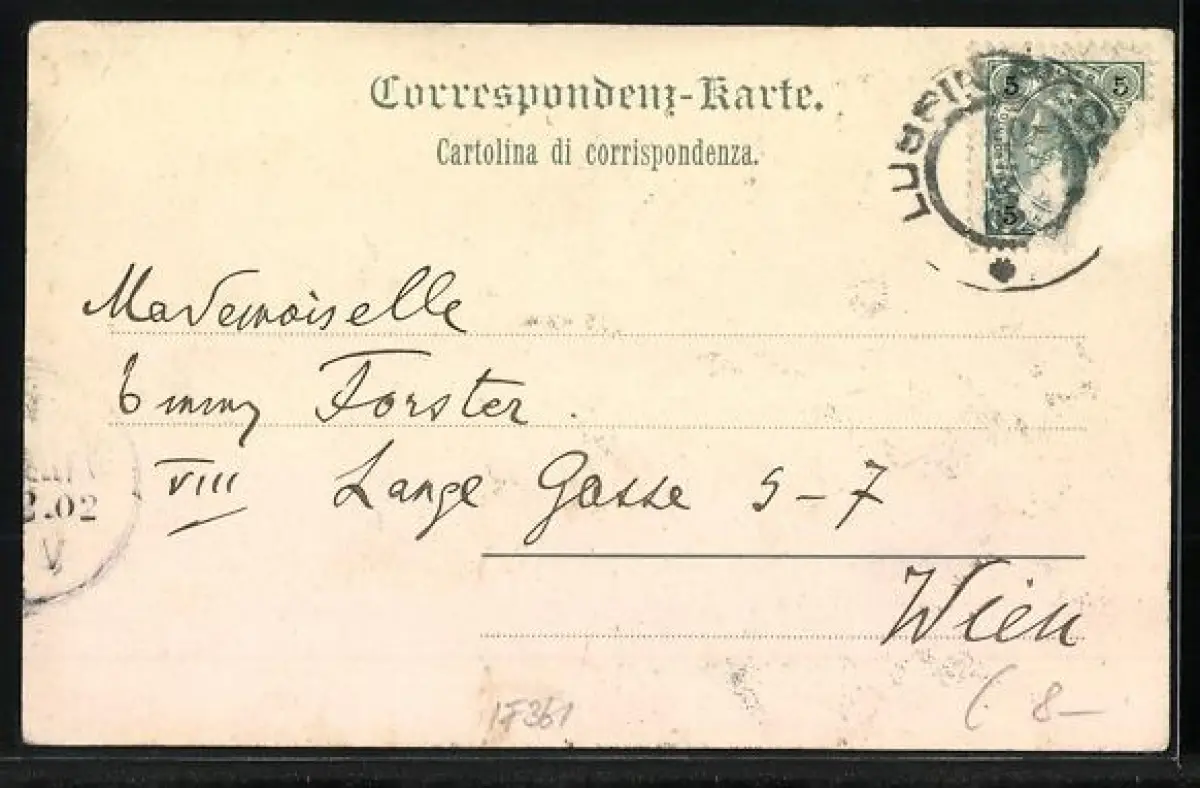 Correspondenz-Karte.
Cartolina di corrispondenza.
5 5
5
LUSSIN
Mademoiselle
Emmy Forster.
VIII Lange Gasse 5-7
Wien
2.02
V
17361
8-